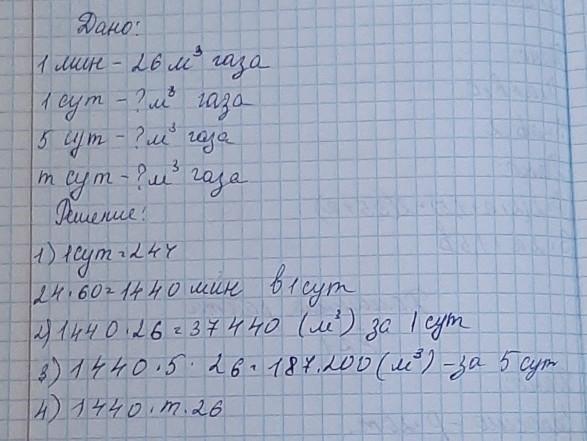 Дано:
1 мин - 26 м³ газа
1 сут - ? м³ газа
5 сут - ? м³ газа
m сут - ? м³ газа
Решение:
1) 1 сут = 24 ч
24 · 60 = 1440 мин в 1 сут
2) 1440 · 26 = 37 440 (м³) за 1 сут
3) 1440 · 5 · 26 = 187.200 (м³) - за 5 сут
4) 1440 · m · 26